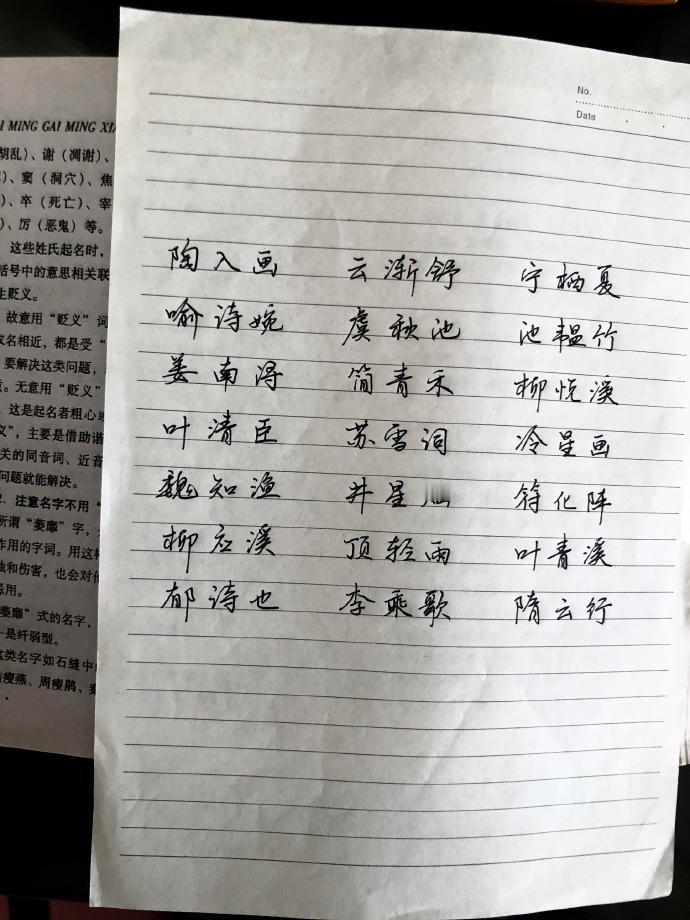 No.
Date
I MING GAI MING XI
胡乱)、谢(凋谢)、
)、窦(洞穴)、焦
)、卒(死亡)、宰
)、厉(恶鬼)等。
这些姓氏起名时,
括号中的意思相关联
生贬义。
故意用“贬义”词
名相近,都是受“
要解决这类问题,
。无意用“贬义”
这是起名者粗心或
义”,主要是借助谐
关的同音词、近音
问题就能解决。
2. 注意名字不用“
所谓“萎靡”字,
作用的字词。用这样
和伤害,也会对他
用。
萎靡”式的名字,
一是纤弱型。
这类名字如石缝中
瘦燕、周瘦鹃、
陶入画 云渐舒 宁栖夏
喻诗婉 虞秋池 池韫竹
姜南浔 简青禾 柳悦溪
叶清臣 苏雪词 冷星画
魏知渔 井星 符化阵
柳应溪 顶轻雨 叶青溪
郁诗也 李乘歌 隋云行